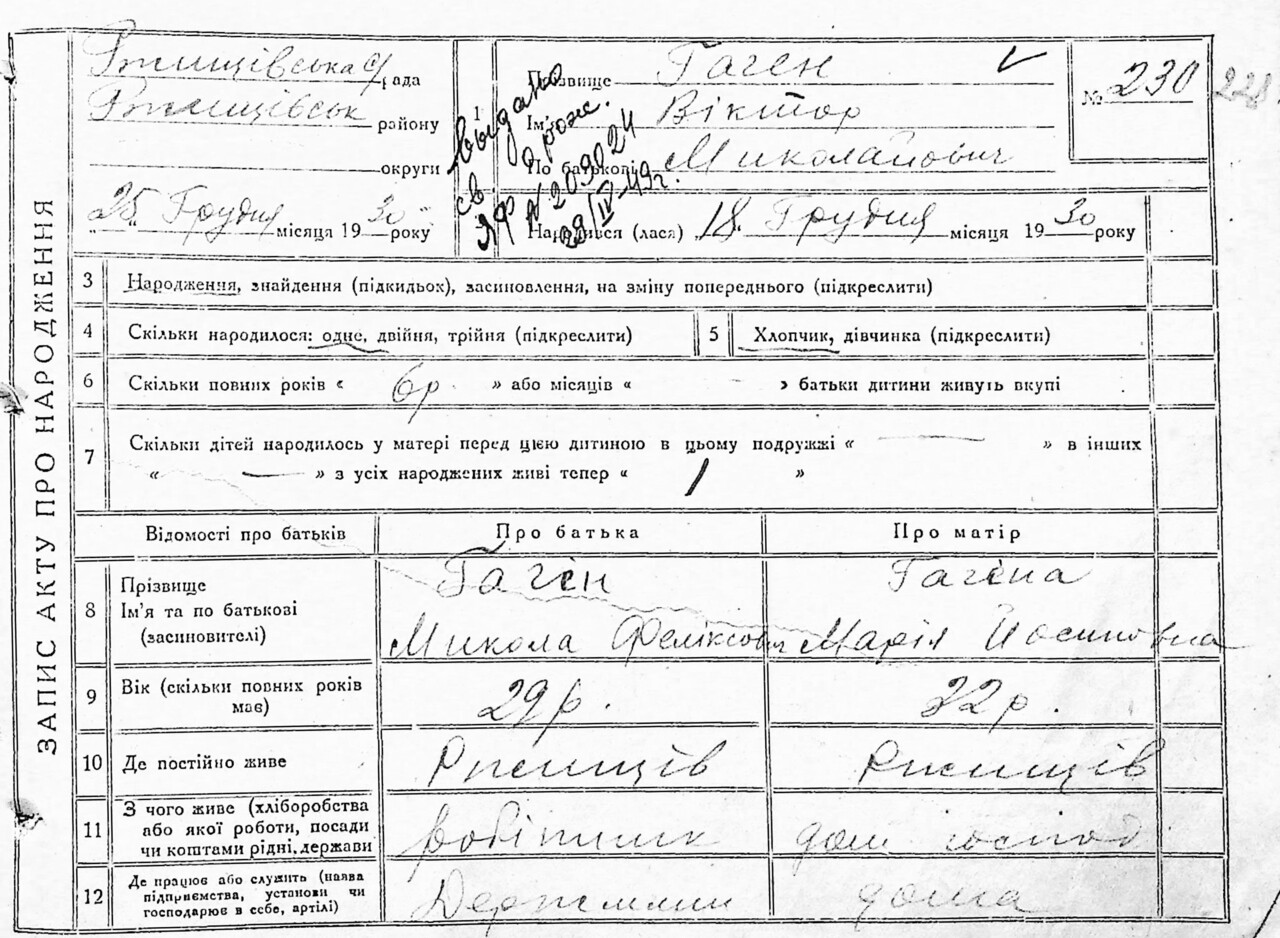 ЗАПИС АКТУ ПРО НАРОДЖЕННЯ
Ржищівська с/рада
Ржищівськ району
округи
"25" Грудня місяця 1930 року
1 Прізвище Гаген
Ім'я Віктор
По батькові Миколайович
№ 230
228
Народився (лася) 18 Грудня місяця 1930 року
Выдано
св о рож.
N 209024
29/IV-49г.
3 Народження, знайдення (підкидьох), засиновлення, на зміну попереднього (підкреслити)
4 Скільки народилося: одне, двійня, трійня (підкреслити)
5 Хлопчик, дівчинка (підкреслити)
6 Скільки повних років « 6р. » або місяців « — » батьки дитини живуть вкупі
7 Скільки дітей народилось у матері перед цією дитиною в цьому подружжі « — » в інших
« — » з усіх народжених живі тепер « 1 »
Відомості про батьків Про батька Про матір
8 Прізвище Гаген Гагена
Ім'я та по батькові Микола Феліксович Марія Йосиповна
(засиновителі)
9 Вік (скільки повних років має) 29 р. 32 р.
10 Де постійно живе Ржищів Ржищів
11 З чого живе (хліборобства
або якої роботи, посади робітник дом господ
чи коштами рідні, держави
12 Де працює або служить (наява
підприємства, установи чи дома
господарює в себе, артілі)